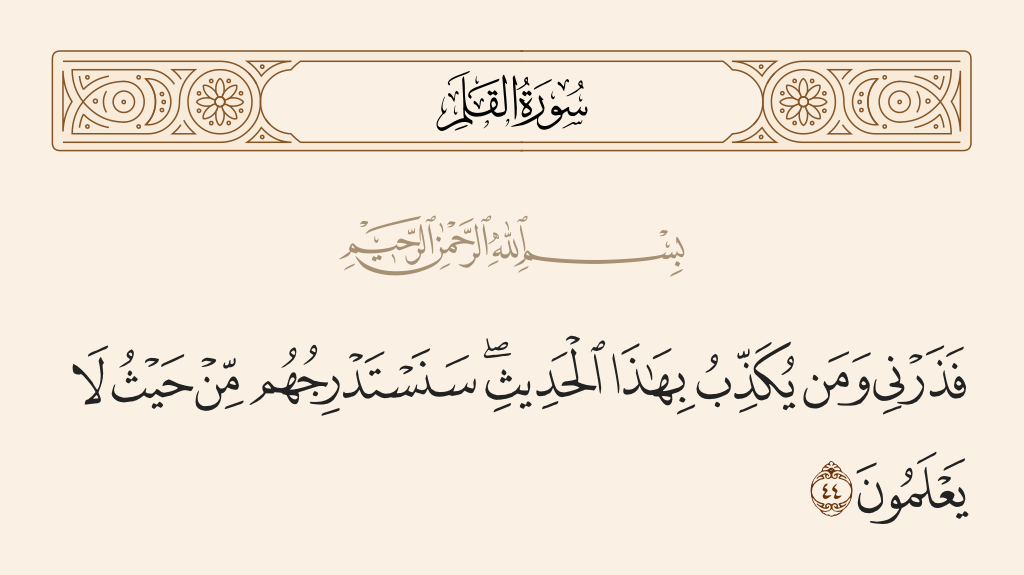 سُورَةُ القَلَمِ
بِسْمِ ٱللَّهِ ٱلرَّحْمَٰنِ ٱلرَّحِيمِ
فَذَرْنِى وَمَن يُكَذِّبُ بِهَٰذَا ٱلْحَدِيثِ ۖ سَنَسْتَدْرِجُهُم مِّنْ حَيْثُ لَا
يَعْلَمُونَ ٤٤